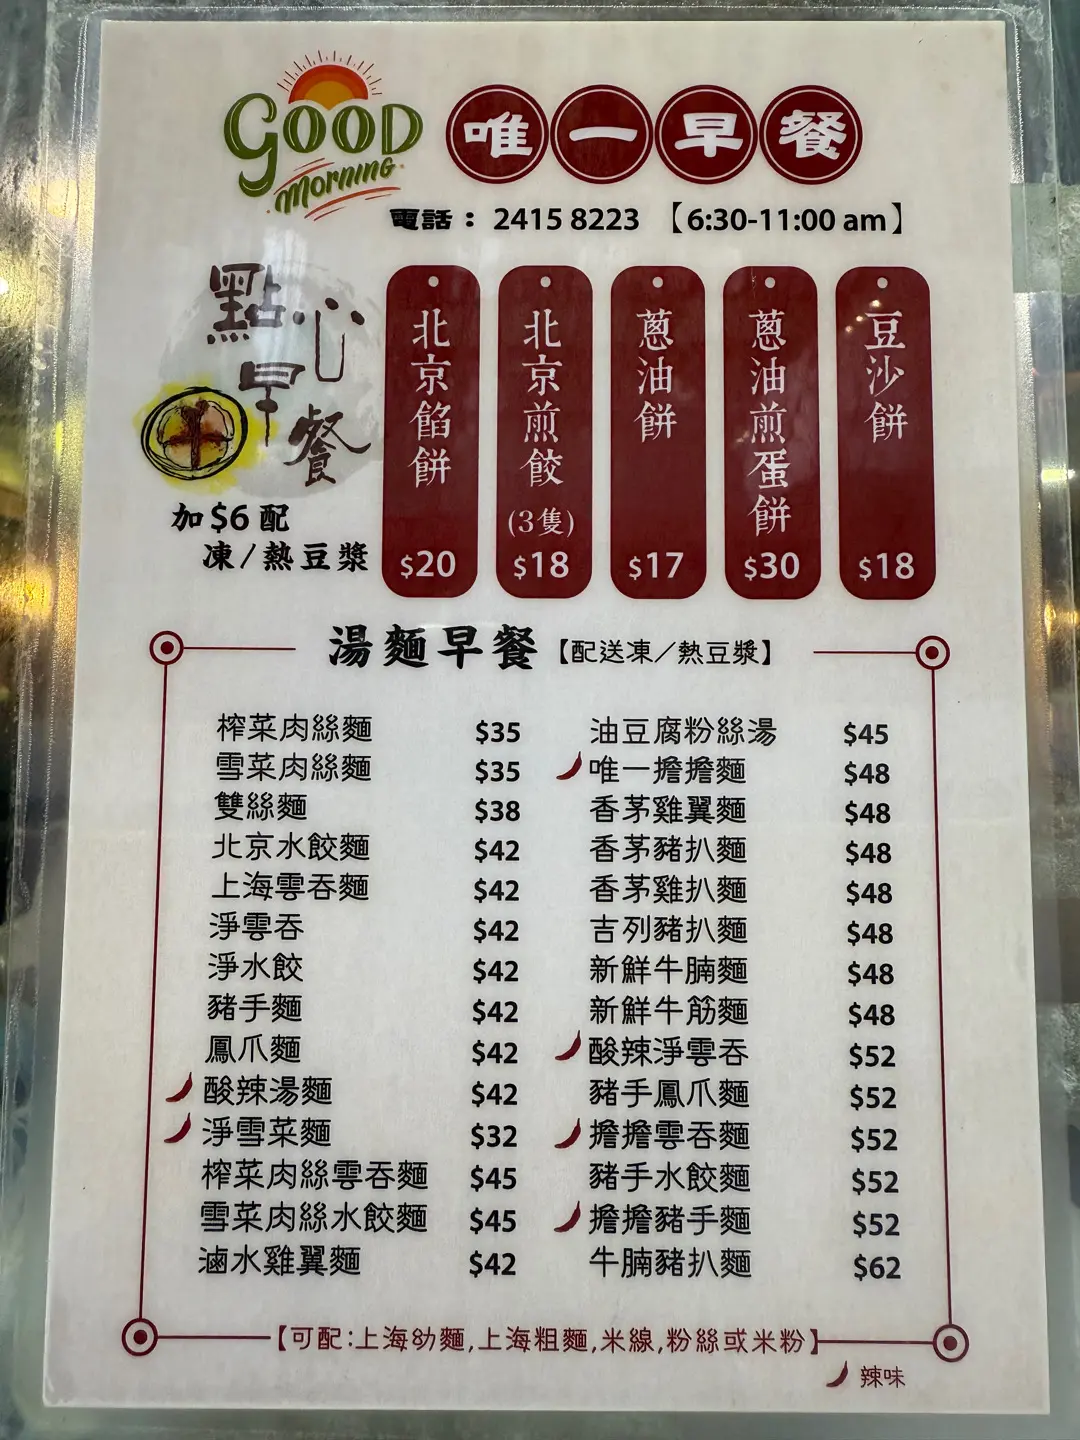 GOOD
Morning
唯一早餐
電話： 2415 8223 【6:30-11:00 am】
點心早餐
加$6配
凍/熱豆漿
北京餡餅 $20
北京煎餃 (3隻) $18
蔥油餅 $17
蔥油煎蛋餅 $30
豆沙餅 $18
湯麵早餐【配送凍／熱豆漿】
榨菜肉絲麵 $35
雪菜肉絲麵 $35
雙絲麵 $38
北京水餃麵 $42
上海雲吞麵 $42
淨雲吞 $42
淨水餃 $42
豬手麵 $42
鳳爪麵 $42
酸辣湯麵 $42
淨雪菜麵 $32
榨菜肉絲雲吞麵 $45
雪菜肉絲水餃麵 $45
滷水雞翼麵 $42
油豆腐粉絲湯 $45
唯一擔擔麵 $48
香茅雞翼麵 $48
香茅豬扒麵 $48
香茅雞扒麵 $48
吉列豬扒麵 $48
新鮮牛腩麵 $48
新鮮牛筋麵 $48
酸辣淨雲吞 $52
豬手鳳爪麵 $52
擔擔雲吞麵 $52
豬手水餃麵 $52
擔擔豬手麵 $52
牛腩豬扒麵 $62
【可配:上海幼麵,上海粗麵,米線,粉絲或米粉】
辣味